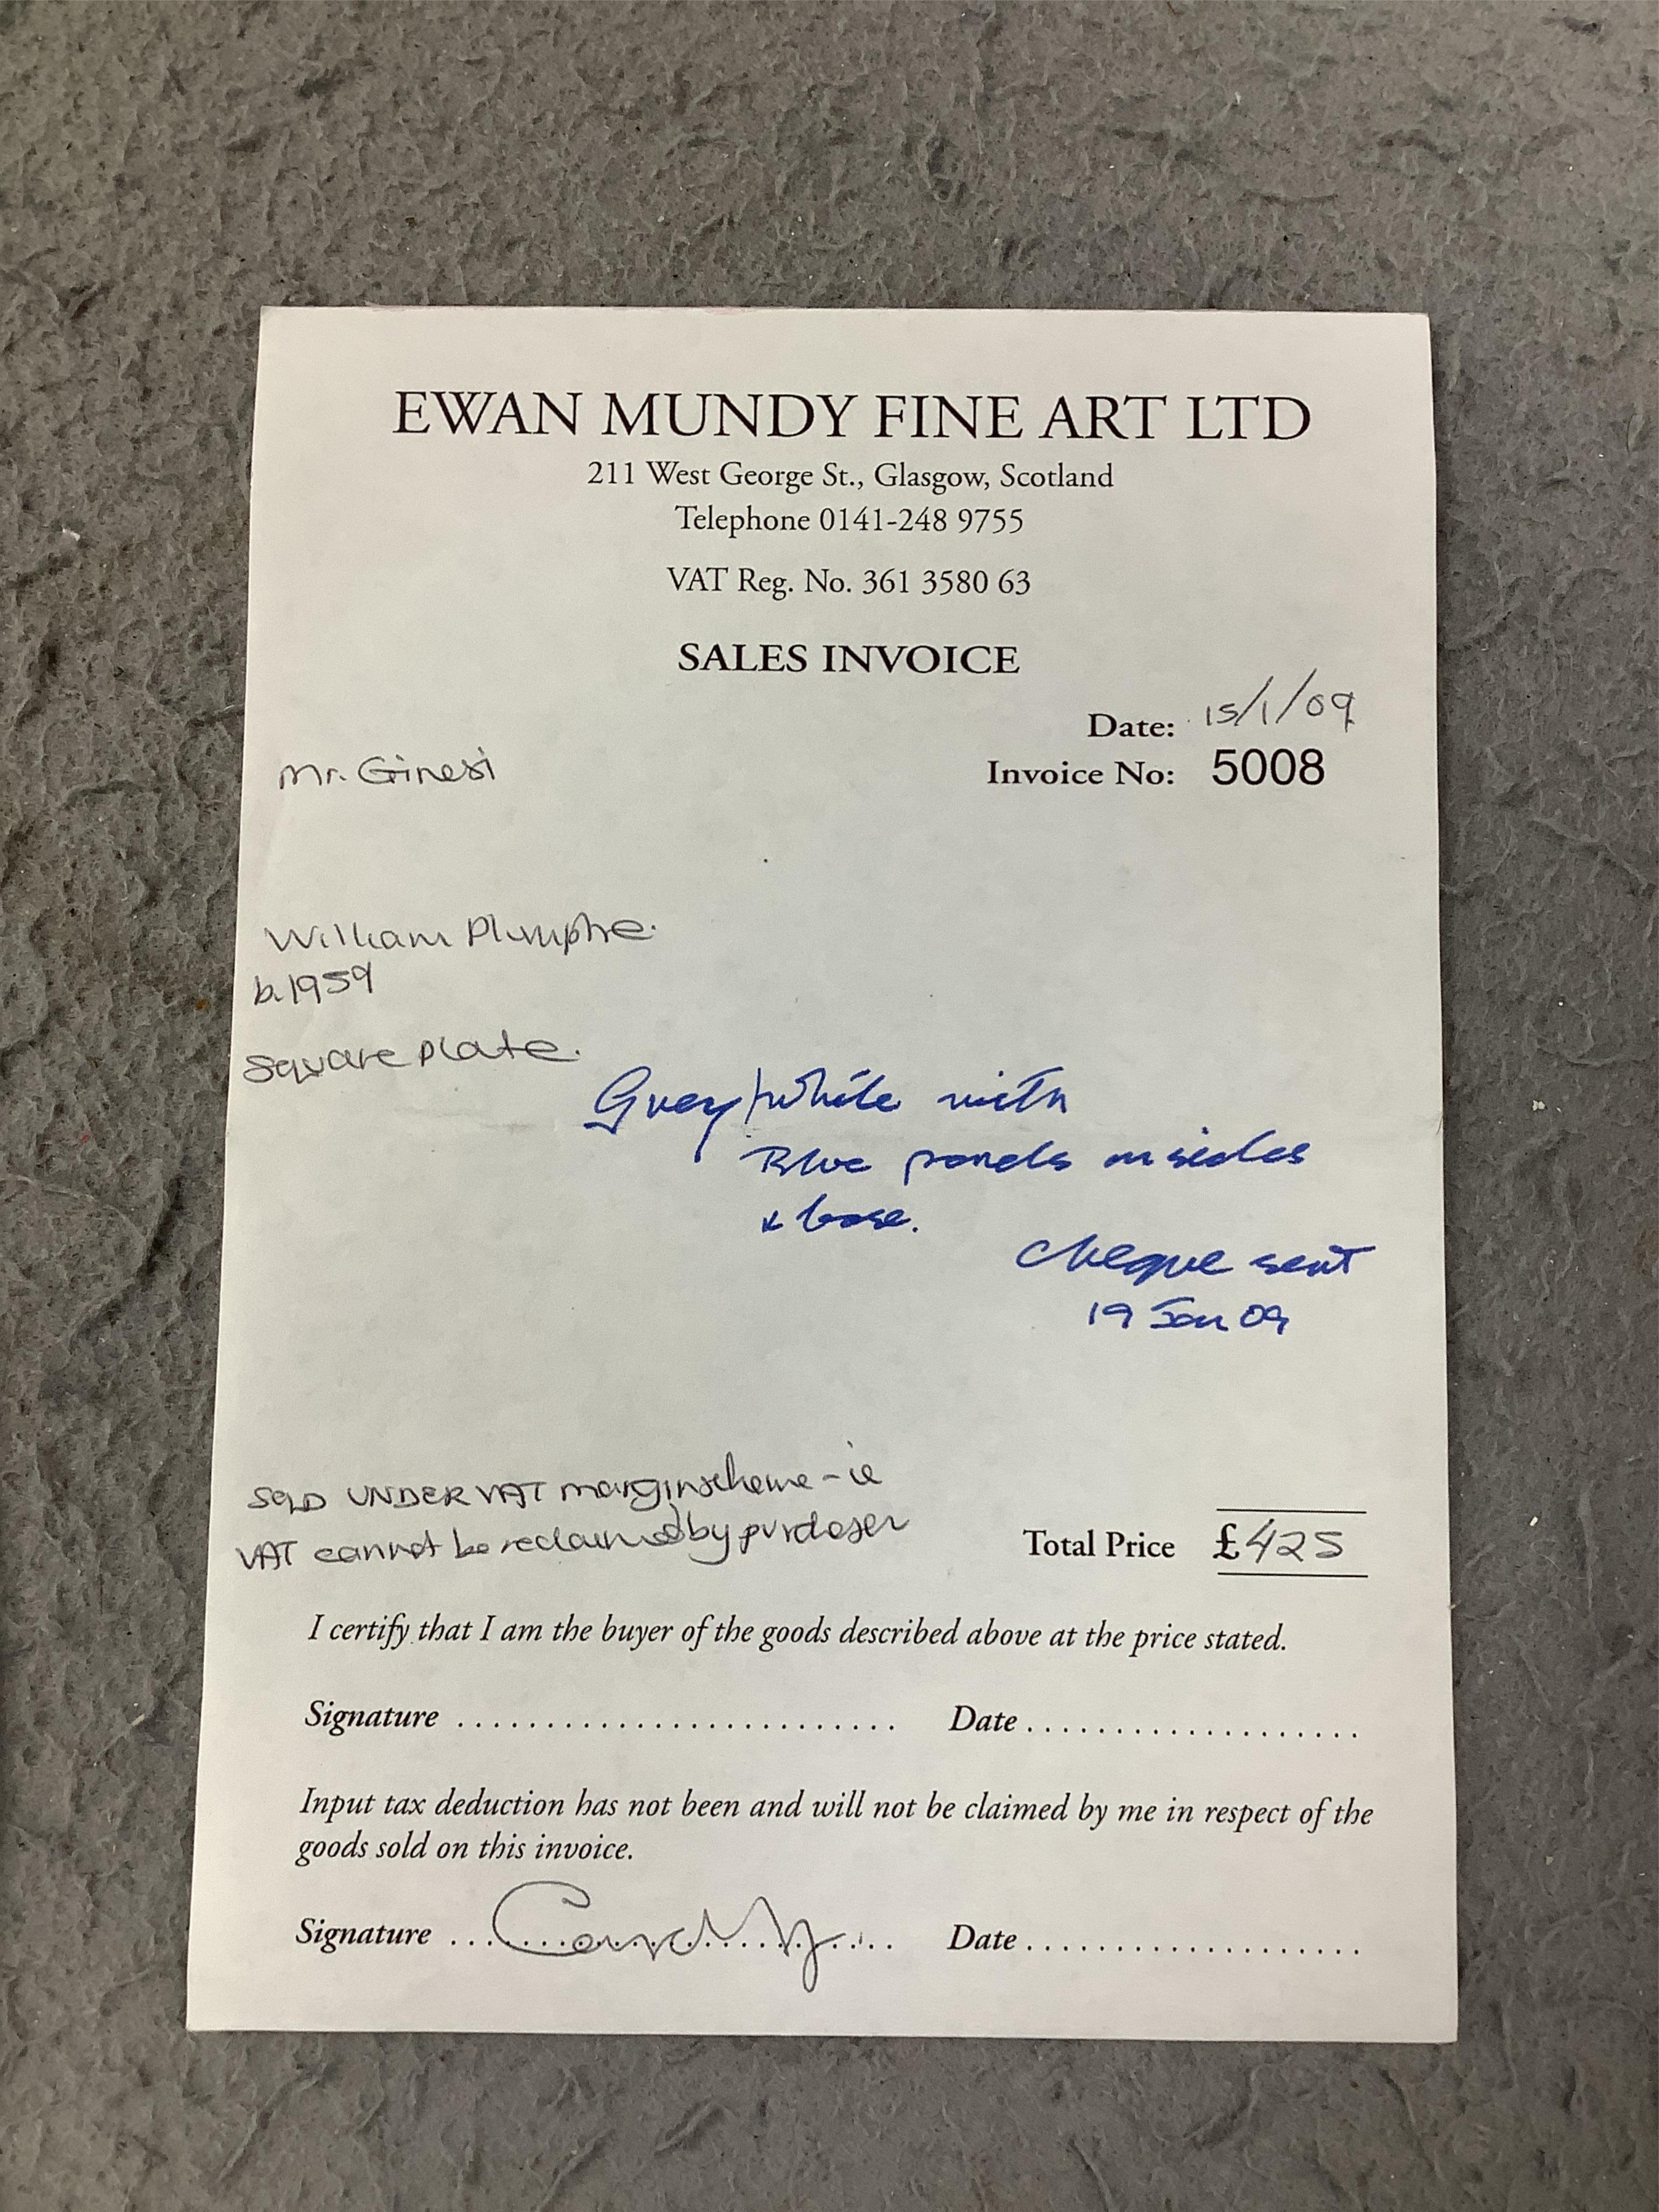 EWAN MUNDY FINE ART LTD
211 West George St., Glasgow, Scotland
Telephone 0141-248 9755
VAT Reg. No. 361 3580 63
SALES INVOICE
Date: 15/1/09
Invoice No: 5008
Mr. Ginesi
William Plumptre.
b.1959
Square plate.
Grey/white with
Blue panels on sides
& base.
Cheque sent
19 Jan 09
SOLD UNDER VAT margin scheme - ie
VAT cannot be reclaimed by purchaser
Total Price £425
I certify that I am the buyer of the goods described above at the price stated.
Signature .......................... Date ....................
Input tax deduction has not been and will not be claimed by me in respect of the
goods sold on this invoice.
Signature .......................... Date ....................